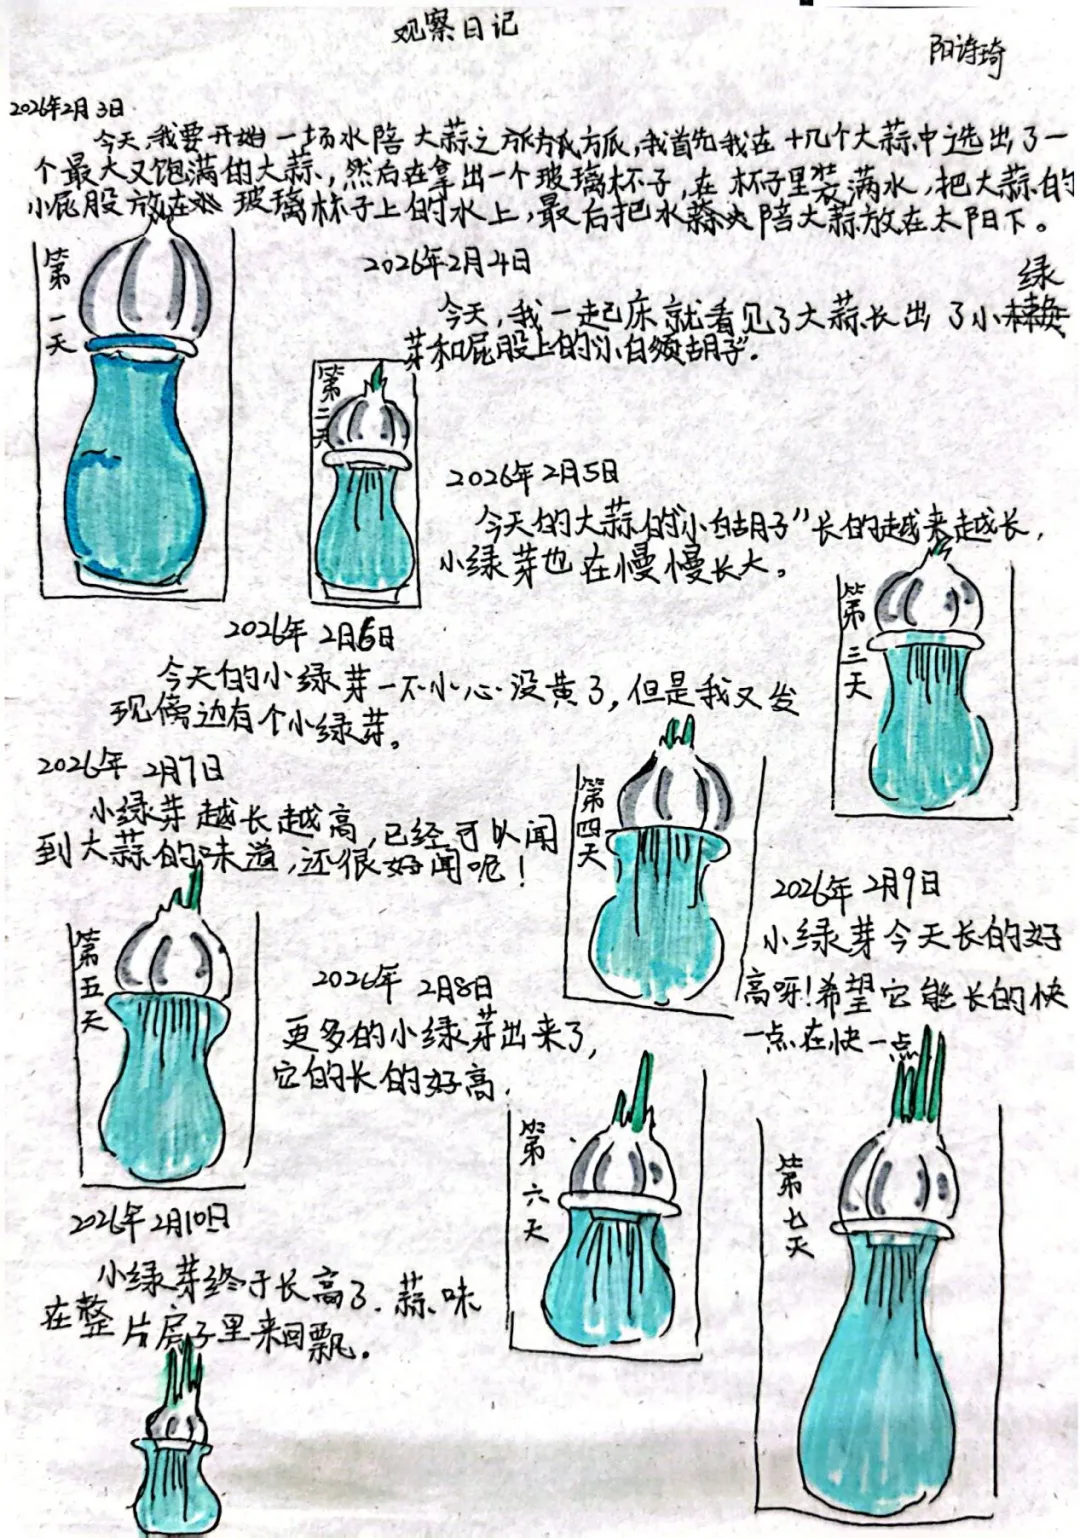 观察日记
阳诗琦
2026年2月3日
今天,我要开始一场水陪大蒜之旅,我首先我在十几个大蒜中选出了一
个最大又饱满的大蒜,然后在拿出一个玻璃杯子,在杯子里装满水,把大蒜的
小屁股放在 玻璃杯子上的水上,最后把水 陪大蒜放在太阳下。
第一天
2026年2月4日
绿
今天,我一起床就看见了大蒜长出了小
芽和屁股上的“小白须胡子”.
第二天
2026年2月5日
今天的大蒜的“小胡子”长的越来越长,
小绿芽也在慢慢长大。
第三天
2026年2月6日
今天的小绿芽一不小心没黄了,但是我又发
现傍边有个小绿芽。
第四天
2026年2月7日
小绿芽越长越高,已经可以闻
到大蒜的味道,还很好闻呢!
第五天
2026年2月8日
更多的小绿芽出来了,
它的长的好高.
第六天
2026年2月9日
小绿芽今天长的好
高呀!希望它能长的快
一点在快一点
第七天
2026年2月10日
小绿芽终于长高了.蒜味
在整片房子里来回飘。